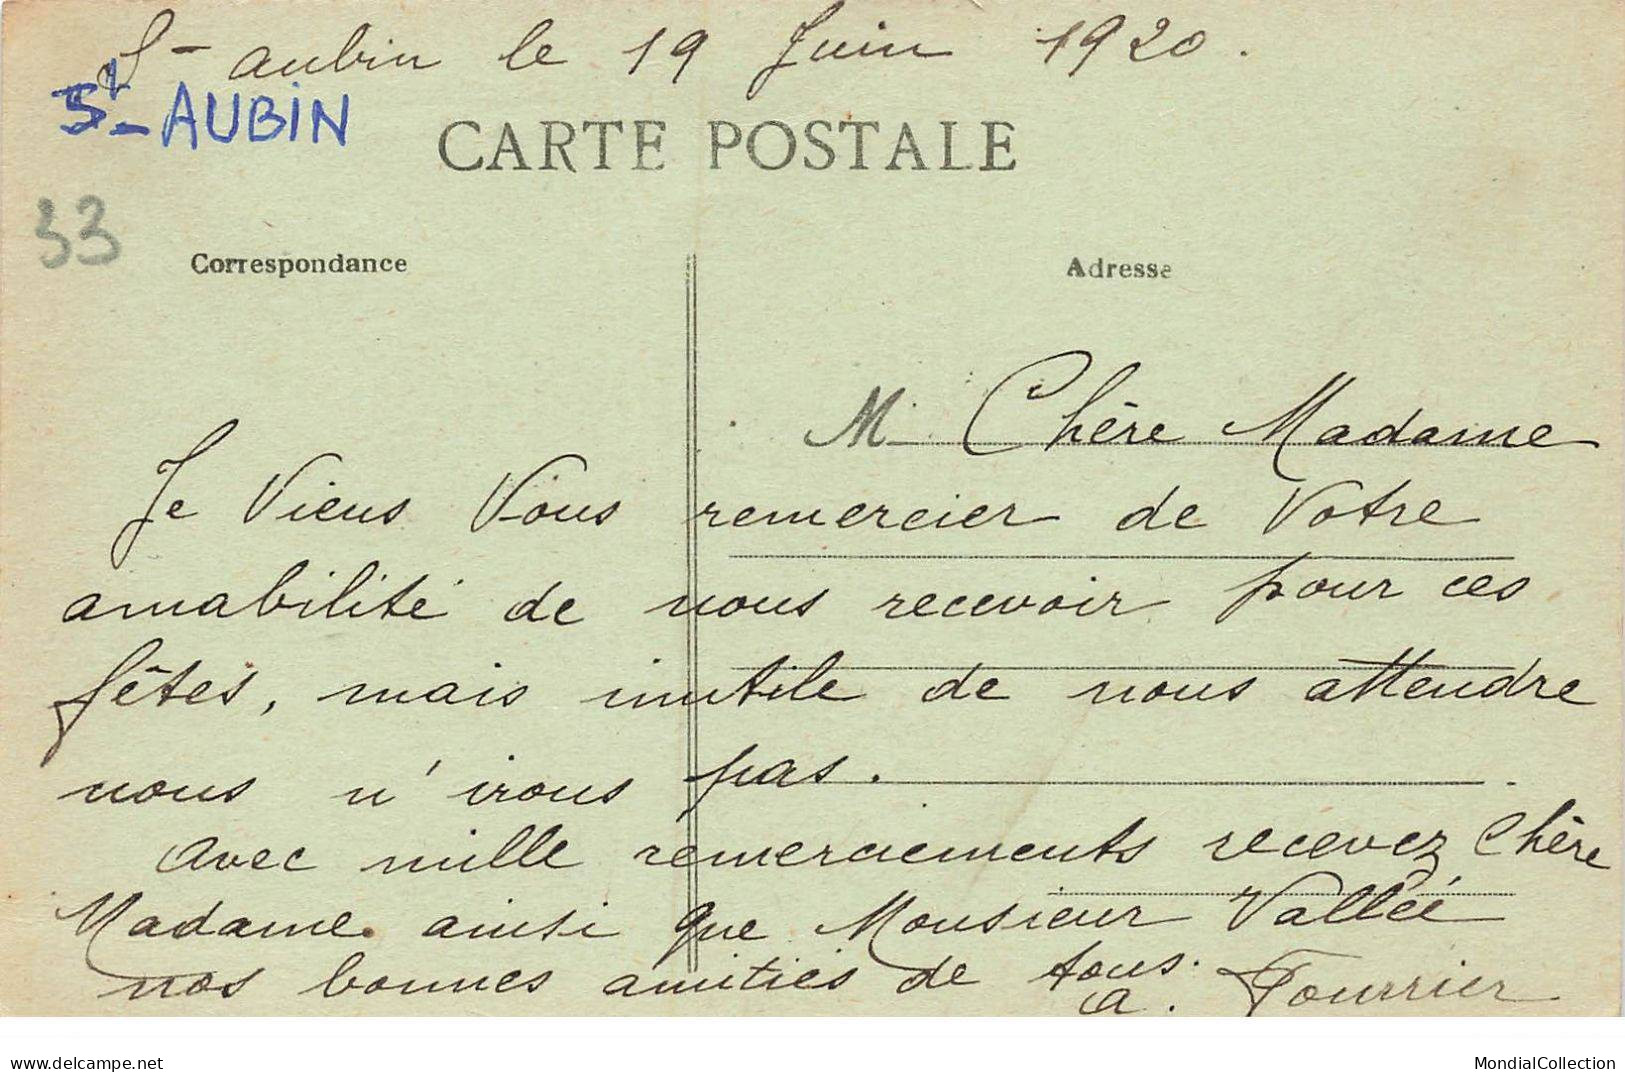 St aubin le 19 Juin 1920.
St-AUBIN
CARTE POSTALE
33
Correspondance
Adresse
M Chère Madame
Je Viens Vous remercier de Votre
amabilité de nous recevoir pour ces
fêtes, mais inutile de nous attendre
nous n'irons pas.
Avec mille remerciements recevez Chère
Madame ainsi que Monsieur Valleé
nos bonnes amitiés de tous.
a. Fourrier
www.delcampe.net
MondialCollection